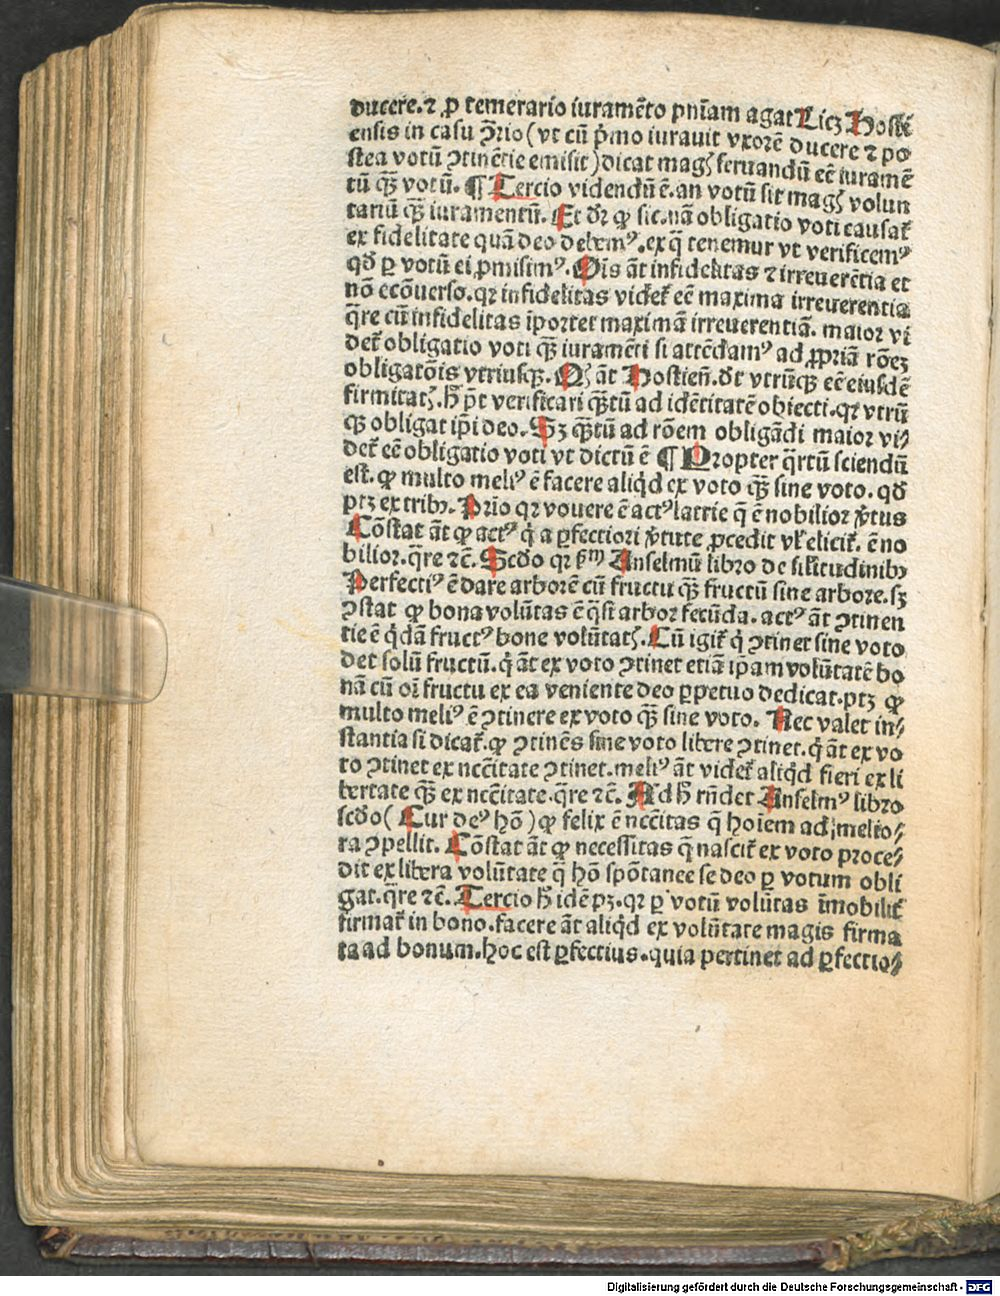 ducere.⁊ ꝓ temerario iuramẽto pnĩam agat Licꝫ Hosti
ensis in casu ꝯ̃rio (vt cũ p̃mo iurauit vxorẽ ducere ⁊ po
stea votũ ꝯtinẽtie emisit) dicat magꝭ seruandũ eẽ iuramẽ
tũ qꝫ̃ votũ. ¶ Tercio videndũ ẽ. an votũ sit magꝭ volun
tariũ qꝫ̃ iuramentũ. Et dr̃ ꝙ sic. nã obligatio voti causat̃
ex fidelitate quã deo debemꝰ. ex q̃ tenemur vt verificemꝰ
qd̃ ꝑ votũ ei ꝓmisimꝰ. Oĩs ãt infidelitas ⁊ irreuerẽtia et
nõ ecõuerso. qꝛ infidelitas videt̃ eẽ maxima irreuerentia
q̃re cũ infidelitas ĩportet maximã irreuerentiã. maior vi
det̃ obligatio voti qꝫ̃ iuramẽti si attẽdamꝰ ad ꝓpriã rõeꝫ
obligatõis vtriusqꝫ. Qꝭ ãt Hostieñ. dt̃ vtrũqꝫ eẽ eiusdẽ
firmitatꝭ. h̃ põt verificari qꝫ̃tũ ad idẽtitatẽ obiecti. qꝛ vtrũ
qꝫ obligat ipĩ deo. Sꝫ qꝫ̃tũ ad rõem obligãdi maior vi⸗
det̃ eẽ obligatio voti vt dictũ ẽ ¶ Propter q̃rtũ sciendũ
est. ꝙ multo meliꝰ ẽ facere aliqd̃ ex voto qꝫ̃ sine voto. qd̃
ptꝫ ex tribꝫ. Prĩo qꝛ vouere ẽ actꝰ latrie q̃ ẽ nobilior ṽtus
Cõstat ãt ꝙ actꝰ q̇ a ꝑfectiori ṽtute ꝓcedit vl̃ elicit̃. ẽ no
bilior. q̃re ⁊c̃. Scd̃o qꝛ ẜm Anselmũ libro de silitudinibꝫ
Perfectiꝰ ẽ dare arborẽ cũ fructu qꝫ̃ fructũ sine arbore. sꝫ
ꝯstat ꝙ bona volũtas ẽ q̃si arbor fecũda. actꝰ ãt ꝯtinen
tie ẽ q̇dã fructꝰ bone volũtatꝭ. Cũ igit̃ q̇ ꝯtinet sine voto
det solũ fructũ. q̇ ãt ex voto ꝯtinet etiã ip̃am volũtatẽ bo
nã cũ oĩ fructu ex ea veniente deo ꝑpetuo dedicat. ptꝫ ꝙ
multo meliꝰ ẽ ꝯtinere ex voto qꝫ̃ sine voto. Nec valet in⸗
stantia si dicat̃. ꝙ ꝯtinẽs sine voto libere ꝯtinet. q̇ ãt ex vo
to ꝯtinet ex nccĩtate ꝯtinet. meliꝰ ãt videt̃ aliqd̃ fieri ex li
bertate qꝫ̃ ex nccĩtate. q̃re ⁊c̃. Ad h̃ rñdet Anselmꝰ libro
scd̃o (Cur deꝰ hõ) ꝙ felix ẽ nccĩtas q̃ hoĩem ad melio⸗
ra ꝯpellit. Cõstat ãt ꝙ necessitas q̃ nascit̃ ex voto proce⸗
dit ex libera volũtate q̃ hõ spõtanee se deo ꝑ votum obli
gat. q̃re ⁊c̃. Tercio h̃ idẽ pꝫ. qꝛ ꝑ votũ volũtas ĩmobilit̃
firmat̃ in bono. facere ãt aliqd̃ ex volũtate magis firma
ta ad bonum. hoc est ꝑfectius. quia pertinet ad ꝑfectio⸗
Digitalisierung gefördert durch die Deutsche Forschungsgemeinschaft - DFG